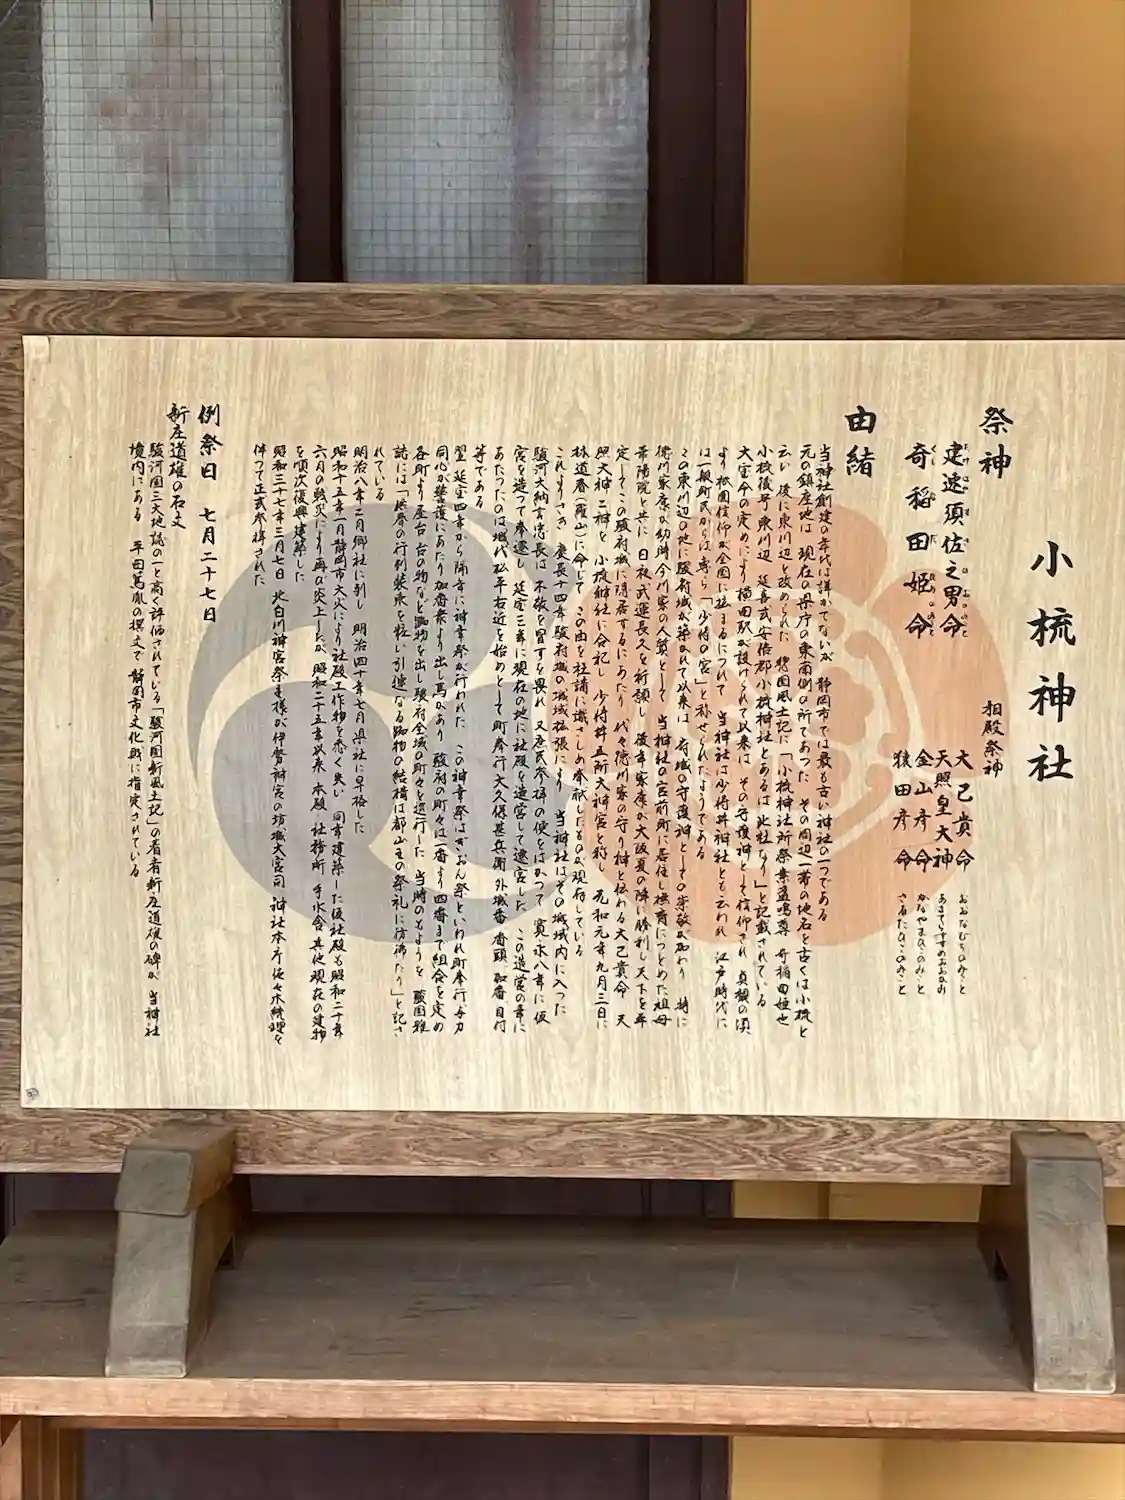 小梳神社
祭神
建速須佐之男命
たけはやすさのおのみこと
奇稲田姫命
くしいなだひめのみこと
相殿祭神
大己貴命 おおなむちのみこと
天照皇大神 あまてらすすめおおかみ
金山彦命 かなやまひこのみこと
猿田彦命 さるたひこのみこと
由緒
当神社創建の年代は詳かでないが 静岡市では最も古い神社の一つである
元の鎮座地は 現在の県庁の東南側の所であった その周辺一帯の地名を古くは小梳と
云い 後に東川辺と改められた 惣国風土記に「小梳神社所祭素盞嗚尊 奇稲田姫也
小梳後号東川辺 延喜式安倍郡小梳神社とあるは此社なり」と記載されている
大宝令の定めにより横田駅が設けられて以来は その守護神として信仰され 貞観の頃
より祇園信仰が全国に拡まるにつれて 当神社は少将井神社とも云われ 江戸時代に
は一般町民からは専ら「少将の宮」と称せられたようである
この東川辺の地に駿府城が築かれて以来は 府城の守護神としての崇敬が加わり 特に
徳川家康が幼時今川家の人質として 当神社の宮前町に居住し撫育につとめた祖母
華陽院と共に 日夜武運長久を祈願し 後年家康が大阪夏の陣に勝利し天下を平
定してこの駿府城に隠居するにあたり 代々徳川家の守り神と伝わる大己貴命 天
照大神 二神を 小梳神社に合祀し 少将井五所大神宮と称し 元和元年九月三日に
林道春(羅山)に命じて この由を社請に識さしめ奉献したものが現存している
これよりさき 慶長十四年駿府城の城域拡張により 当神社はその城域内に入った
駿河大納言忠長は 不敬を冒すを畏れ 又庶民参拝の便をはかって 寛永八年に仮
宮を造って奉遷し 延宝三年に現在の地に社殿を造営して遷宮した この造営の奉行に
あたったのは城代松平右近を始めとして町奉行大久保甚兵衛 外城番 番頭 加番 目付
等である
翌延宝四年から隔年に神幸祭が行われた この神幸祭はぎおん祭といわれ町奉行 与力
同心が警護にあたり加番衆より出し馬があり 駿府の町々は一番より四番まで組合を定め
各町より屋台 台の物など踟物を出し駿府全域の町々を巡行した 当時のもようを 駿国雅
誌には「供奉の行列装束を粧い引連なる踟物の結構は都山王の祭礼に彷彿たり」と記さ
れている
明治八年二月郷社に列し 明治四十年七月県社に昇格した
昭和十五年一月静岡市大火により社殿工作物を悉く失い 同年建築した仮社殿も昭和二十年
六月の戦災により再び炎上したが 昭和二十五年以来 本殿 社務所 手水舎 其他現在の建物
を順次復興建築した
昭和三十七年三月七日 北白川神宮祭主様が伊勢神宮の坊城大宮司 神社本庁佐々木統理を
伴って正式参拝された
例祭日 七月二十七日
新庄道雄の石文
駿河国三大地誌の一と高く評価されている「駿河国新風土記」の著者新庄道雄の碑が 当神社
境内にある 平田篤胤の撰文で静岡市文化財に指定されている